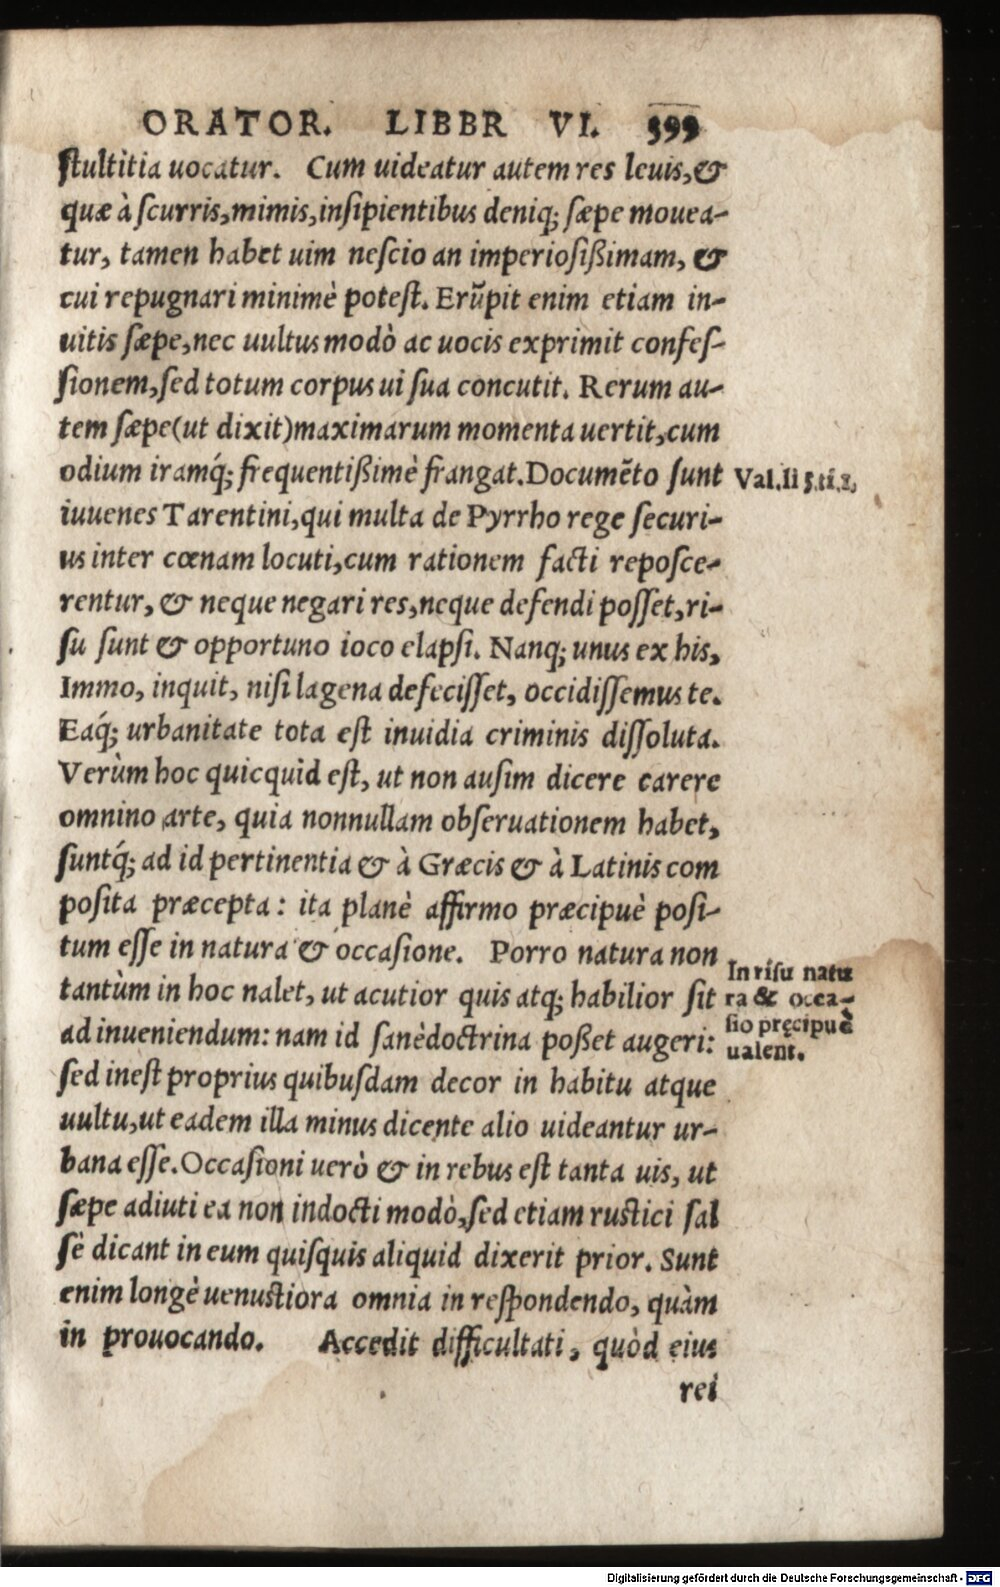 ORATOR. LIBBR VI. 399
ſtultitia uocatur. Cum uideatur autem res leuis, &
quæ à ſcurris, mimis, inſipientibus deniq; ſæpe mouea-
tur, tamen habet uim neſcio an imperioſißimam, &
cui repugnari minimè poteſt. Erũpit enim etiam in-
uitis ſæpe, nec uultus modò ac uocis exprimit confeſ-
ſionem, ſed totum corpus ui ſua concutit. Rerum au-
tem ſæpe (ut dixit) maximarum momenta uertit, cum
odium iramq́; frequentißimè frangat. Documẽto ſunt
Val. li 5. ti. 1.
iuuenes Tarentini, qui multa de Pyrrho rege ſecuri-
us inter cœnam locuti, cum rationem facti repoſce-
rentur, & neque negari res, neque defendi poſſet, ri-
ſu ſunt & opportuno ioco elapſi. Nanq; unus ex his,
Immo, inquit, niſi lagena defeciſſet, occidiſſemus te.
Eaq́; urbanitate tota eſt inuidia criminis diſſoluta.
Verùm hoc quicquid eſt, ut non auſim dicere carere
omnino arte, quia nonnullam obſeruationem habet,
ſuntq́; ad id pertinentia & à Græcis & à Latinis com
poſita præcepta: ita planè affirmo præcipuè poſi-
tum eſſe in natura & occaſione. Porro natura non
tantùm in hoc nalet, ut acutior quis atq; habilior ſit
ad inueniendum: nam id ſanè doctrina poßet augeri:
In riſu natu
ra & occa-
ſio pręcipuè
ualent.
ſed ineſt proprius quibuſdam decor in habitu atque
uultu, ut eadem illa minus dicente alio uideantur ur-
bana eſſe. Occaſioni uerò & in rebus eſt tanta uis, ut
ſæpe adiuti ea non indocti modò, ſed etiam ruſtici ſal
ſè dicant in eum quiſquis aliquid dixerit prior. Sunt
enim longè uenuſtiora omnia in reſpondendo, quàm
in prouocando. Accedit difficultati, quòd eius
rei
Digitalisierung gefördert durch die Deutsche Forschungsgemeinschaft - DFG